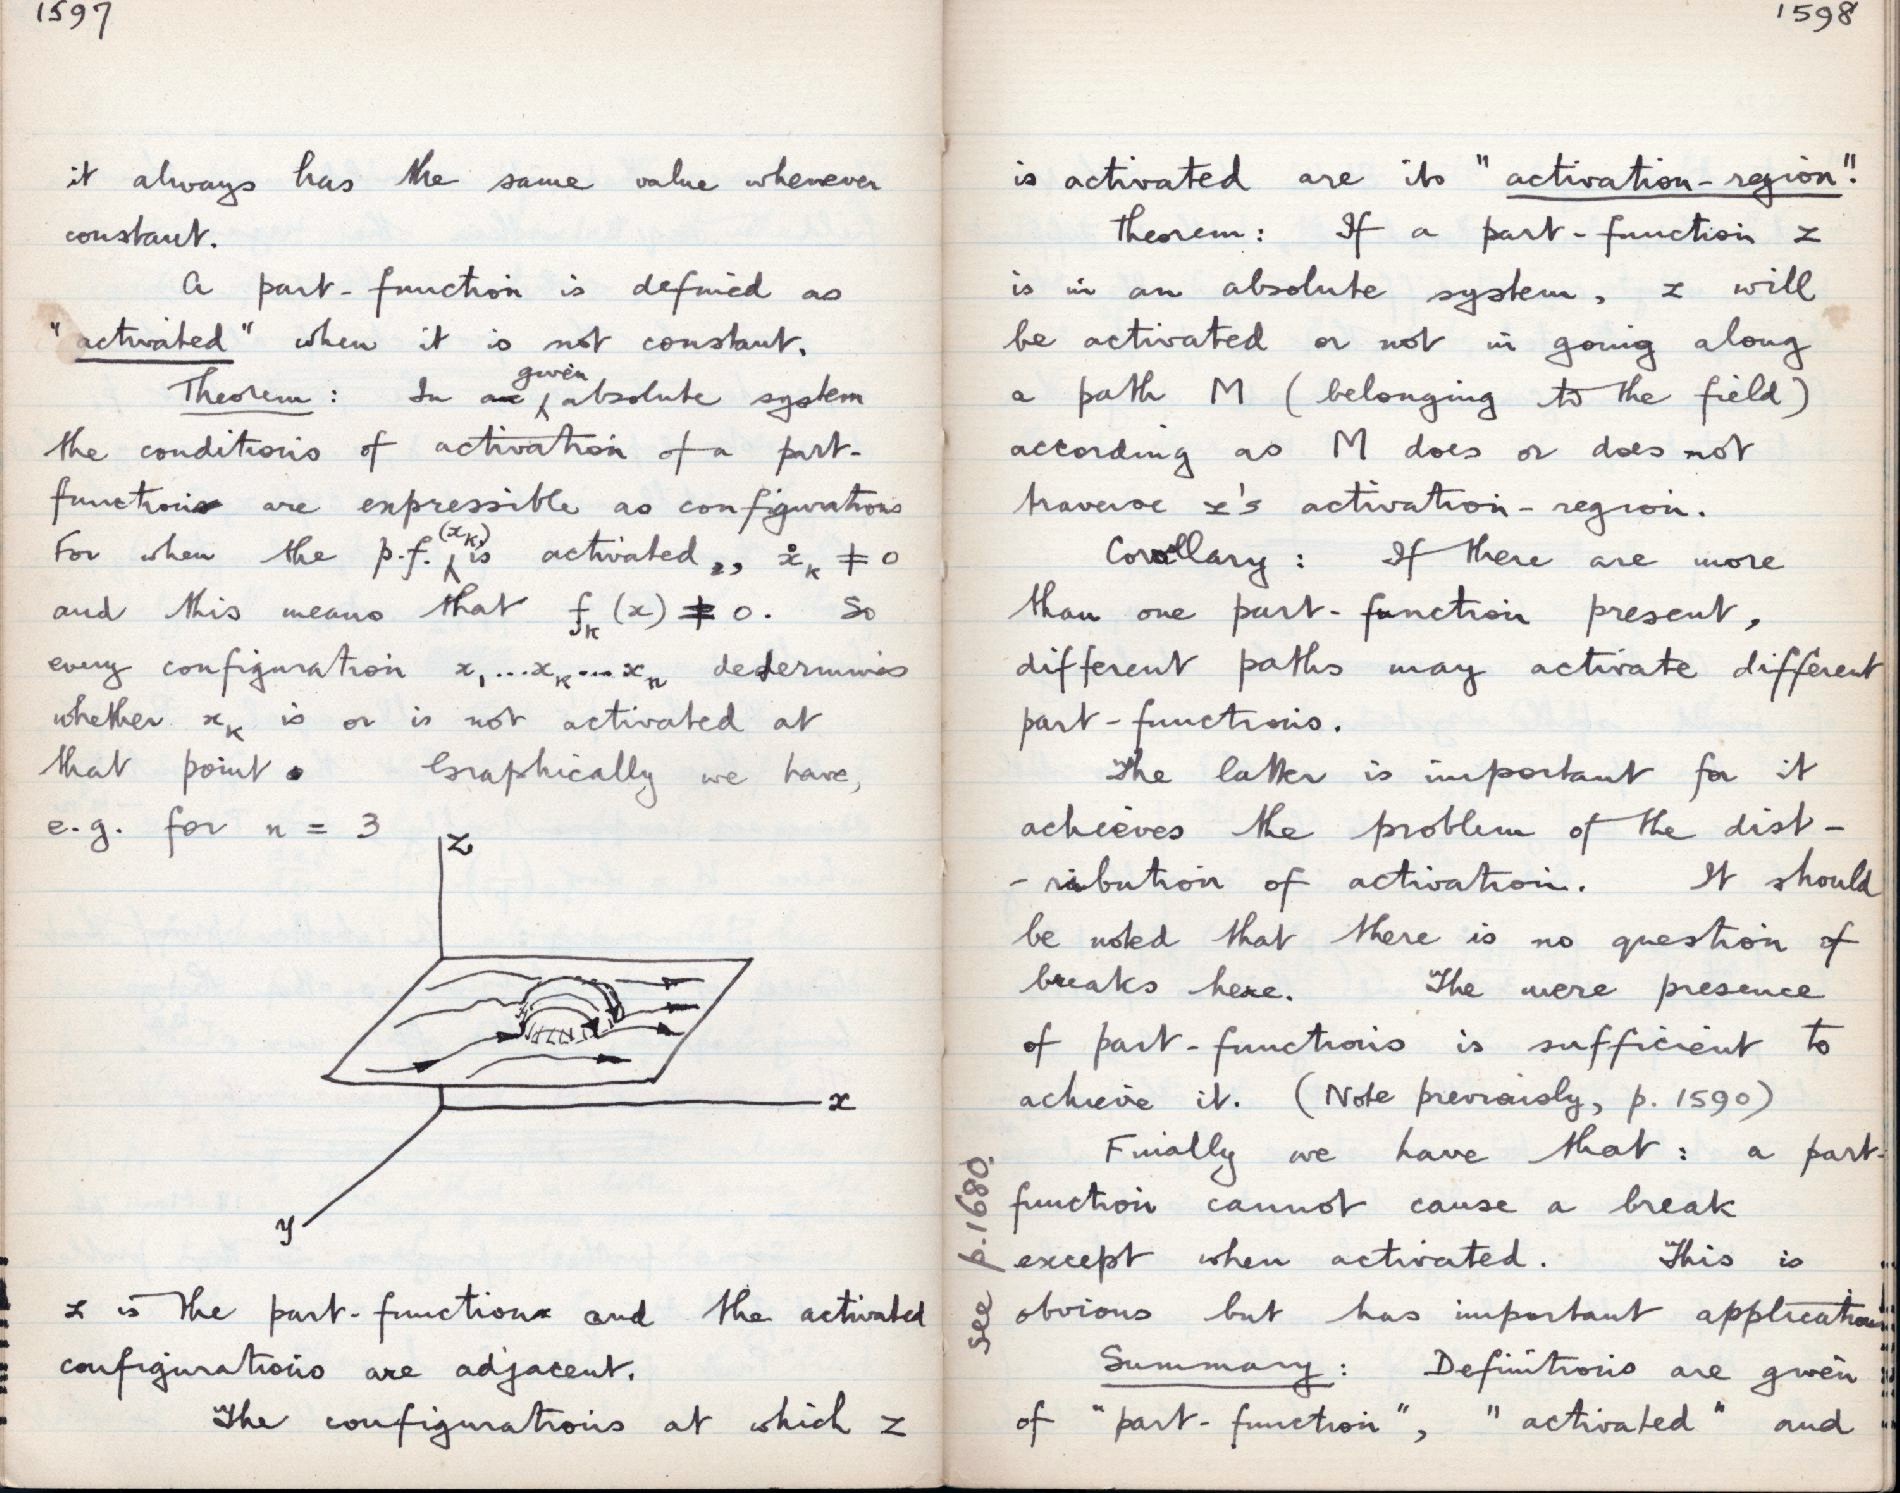 1597
it always has the same value whenever
constant.
A part-function is defined as
"activated" when it is not constant.
Theorem: In a given absolute system
the conditions of activation of a part-
function are expressible as configurations
For when the p.f. (xk) is activated, ẋk ≠ 0
and this means that fk(x) ≠ 0. So
every configuration x1...xk...xn determines
whether xk is or is not activated at
that point. Graphically we have,
e.g. for n = 3
z
x
y
z is the part-function and the activated
configurations are adjacent.
The configurations at which z
1598
is activated are its "activation-region".
Theorem: If a part-function z
is in an absolute system, z will
be activated or not in going along
a path M (belonging to the field)
according as M does or does not
traverse z's activation-region.
Corollary: If there are more
than one part-function present,
different paths may activate different
part-functions.
The latter is important for it
achieves the problem of the dist-
-ribution of activation. It should
be noted that there is no question of
breaks here. The mere presence
of part-functions is sufficient to
achieve it. (Note previously, p. 1590)
Finally we have that: a part-
function cannot cause a break
except when activated. This is
obvious but has important applications
see p.1680.
Summary: Definitions are given
of "part-function", "activated" and